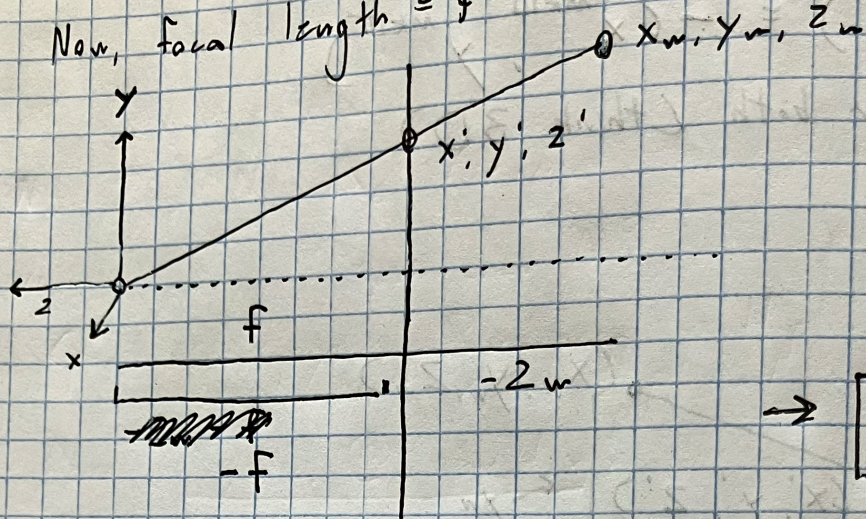 Now, focal length = f
y
xw, yw, zw
x', y', z'
z
x
f
-zw
-f
→